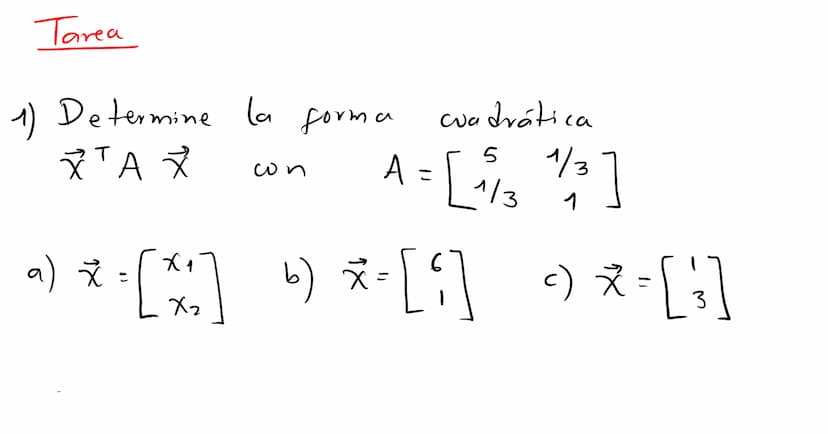 Tarea
1) Determine la forma cuadrática
x⃗ᵀ A x⃗ con A = [5 1/3; 1/3 1]
a) x⃗ = [x₁; x₂] b) x⃗ = [6; 1] c) x⃗ = [1; 3]